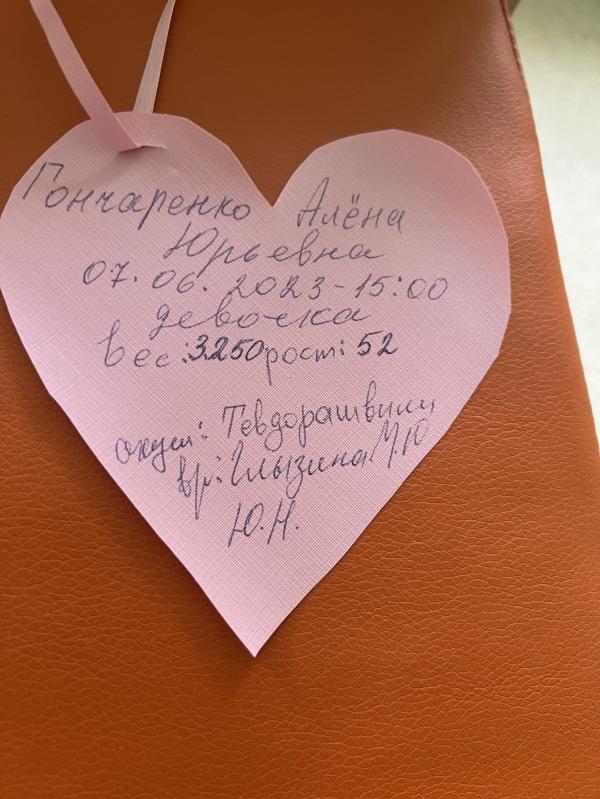 Гончаренко Алёна
Юрьевна
07.06.2023-15:00
девочка
вес:3250рост:52
акуш: Тевдорашвили
вр: Глызина М.Ю
Ю.Н.